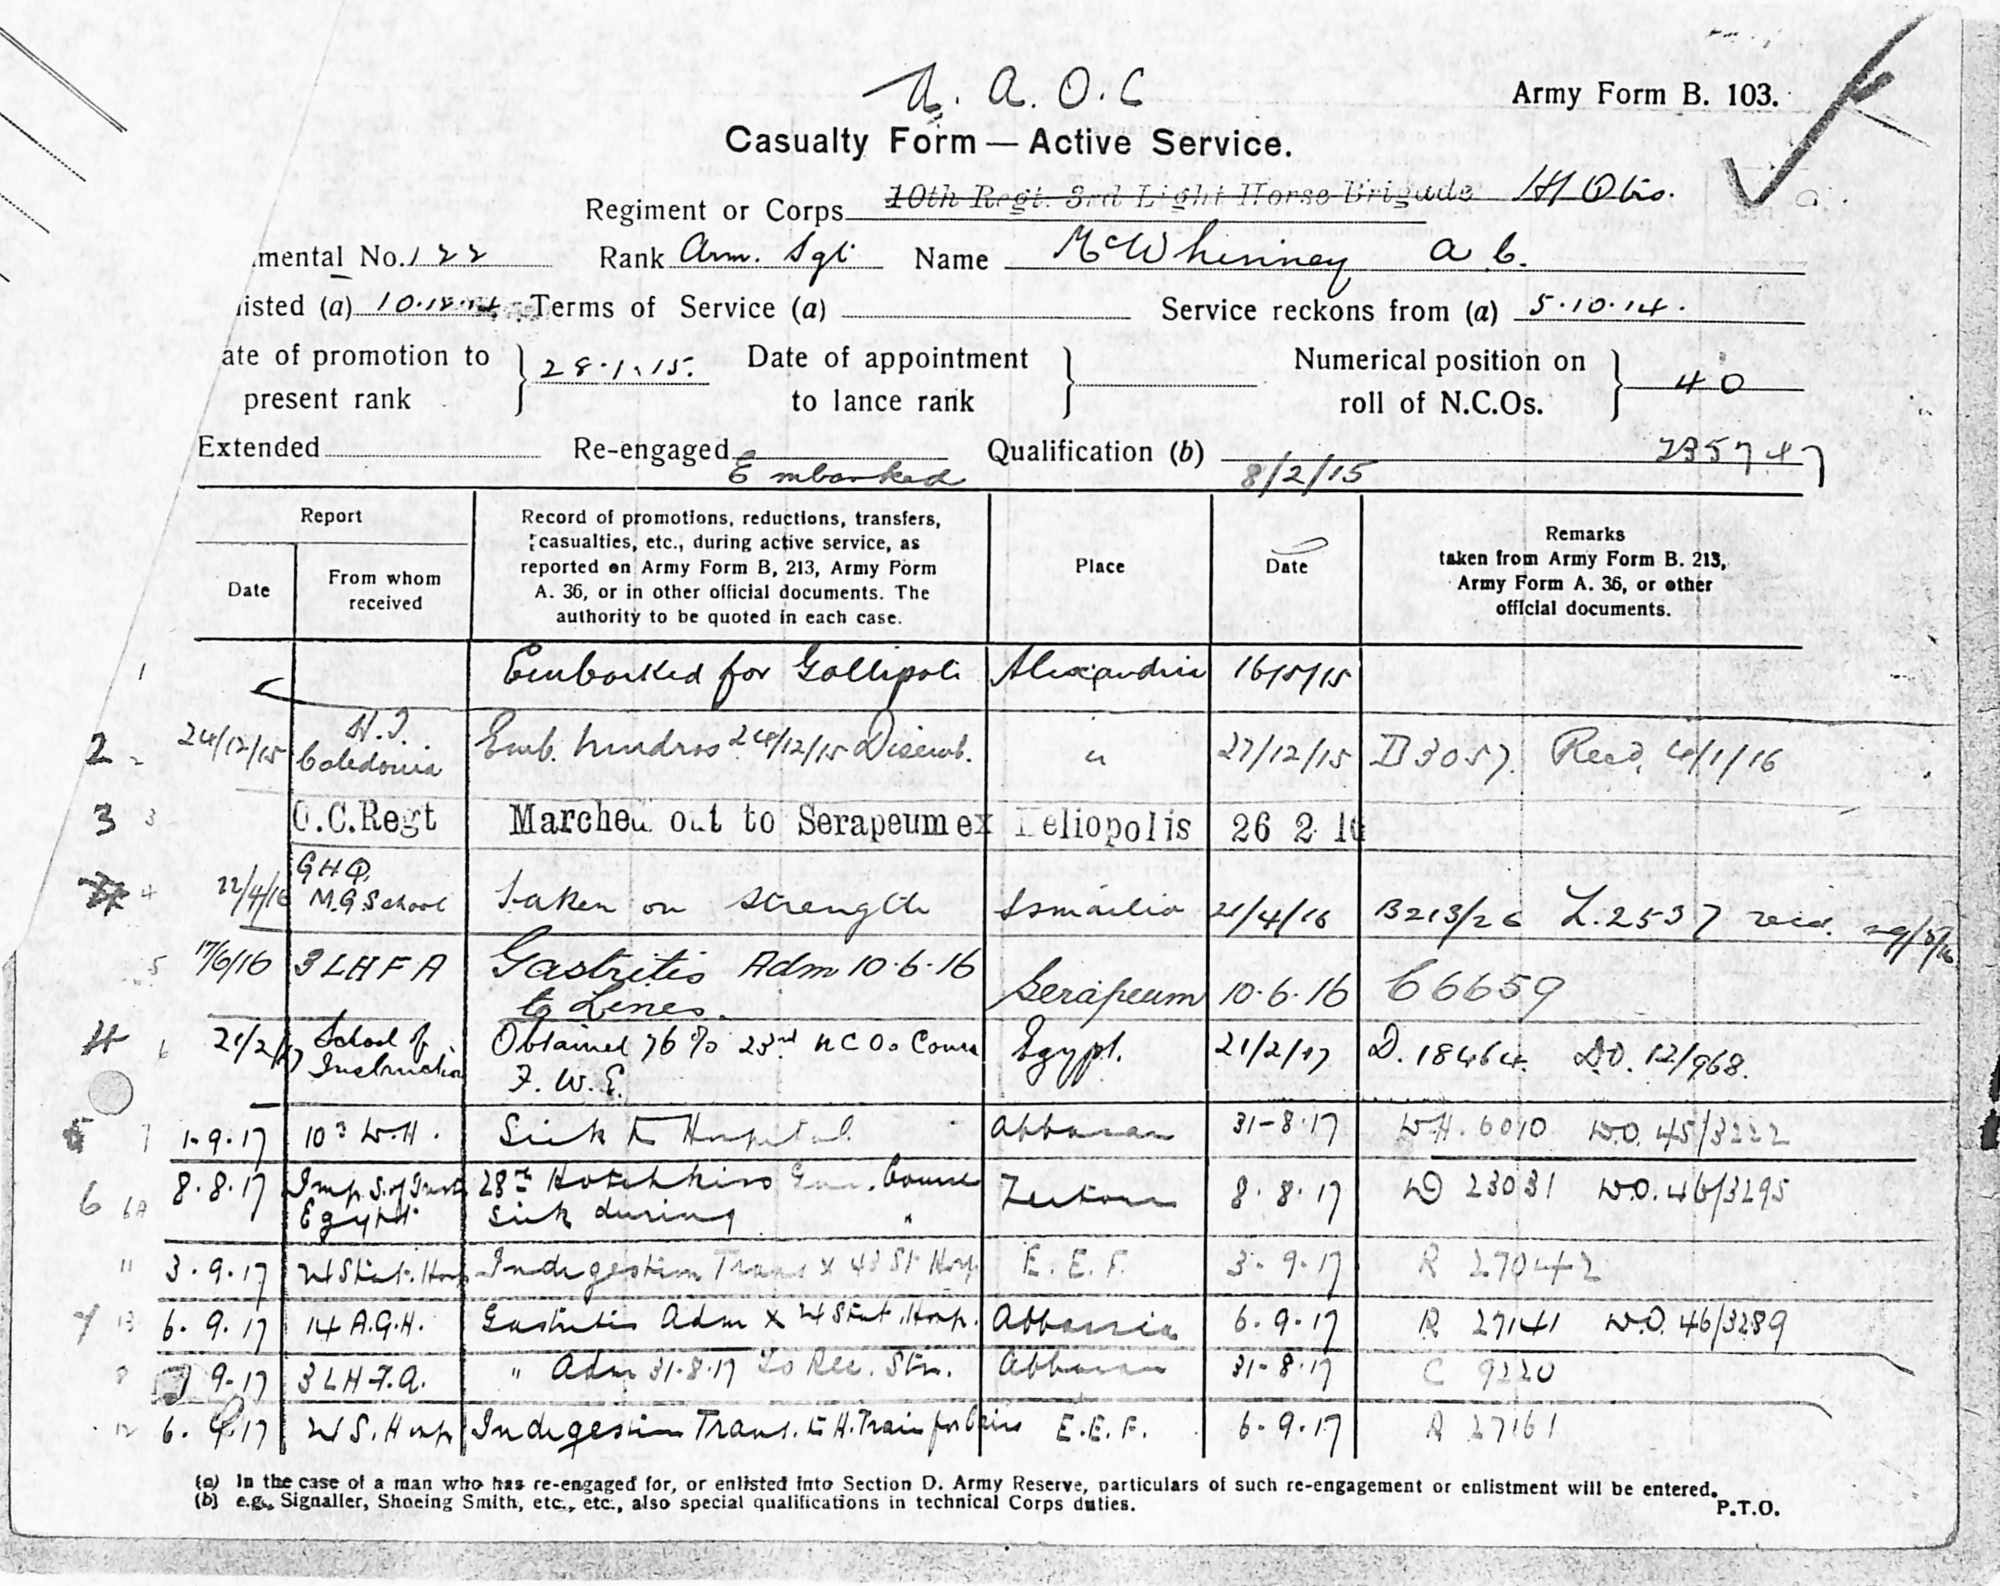 A. A. O. C
Army Form B. 103.
Casualty Form — Active Service.
Regiment or Corps 10th Regt. 3rd Light Horse Brigade
mental No. 122 Rank Arm. Sgt Name McWhinney A. C.
listed (a) 10.12.14 Terms of Service (a) Service reckons from (a) 5.10.14.
ate of promotion to present rank } 28.1.15. Date of appointment to lance rank } Numerical position on roll of N.C.Os. } 40
Extended Re-engaged Qualification (b) 235747
Embarked 8/2/15
Report
Date
From whom received
Record of promotions, reductions, transfers, casualties, etc., during active service, as reported on Army Form B, 213, Army Form A. 36, or in other official documents. The authority to be quoted in each case.
Place
Date
Remarks taken from Army Form B. 213, Army Form A. 36, or other official documents.
1 Embarked for Gallipoli Alexandria 16/5/15
2 24/12/15 H.T. Caledonia Emb. Mudros 24/12/15 Disemb. " 27/12/15 D3057. Recd. 4/1/16
3 3 O.C. Regt Marched out to Serapeum ex Heliopolis 26 2 16
4 22/4/16 GHQ. M.G School Taken on strength Ismailia 21/4/16 B213/26 L.2537 recd.
5 17/6/16 3 LHFA Gastritis Adm 10.6.16 to Lines. Serapeum 10.6.16 C6659
4 6 21/2/17 School of Instruction Obtained 76% 23rd NCOs Course F.W.E. Egypt. 21/2/17 D.18464. DO. 12/968.
5 7 1.9.17 W.H. Sick to Hospital Abbassan 31-8.17 WH.6010 W.O. 45/3222
6 6A 8.8.17 Imp. S. of Inst Egypt 28th Hotchkiss Gun. Course sick during " Zeitoun 8.8.17 D 23031 W.O. 46/3295
11 3.9.17 24 Stat. Hosp Indigestion Trans x 43 St Hosp E.E.F. 3.9.17 R 27042
7 13 6.9.17 14 A.G.H. Gastritis Adm x 24 Stat. Hosp. Abbassia 6.9.17 R 27141 W.O. 46/3289
8 9.17 3 LH.F.A. " Adm 31.8.17 To Rec. Stn. Abbassan 31-8.17 C 9220
12 6.9.17 24 S. Hosp Indigestion Trans. to H. Train for Cairo E.E.F. 6.9.17 R 27161
(a) In the case of a man who has re-engaged for, or enlisted into Section D. Army Reserve, particulars of such re-engagement or enlistment will be entered.
(b) e.g., Signaller, Shoeing Smith, etc., etc., also special qualifications in technical Corps duties.
P.T.O.